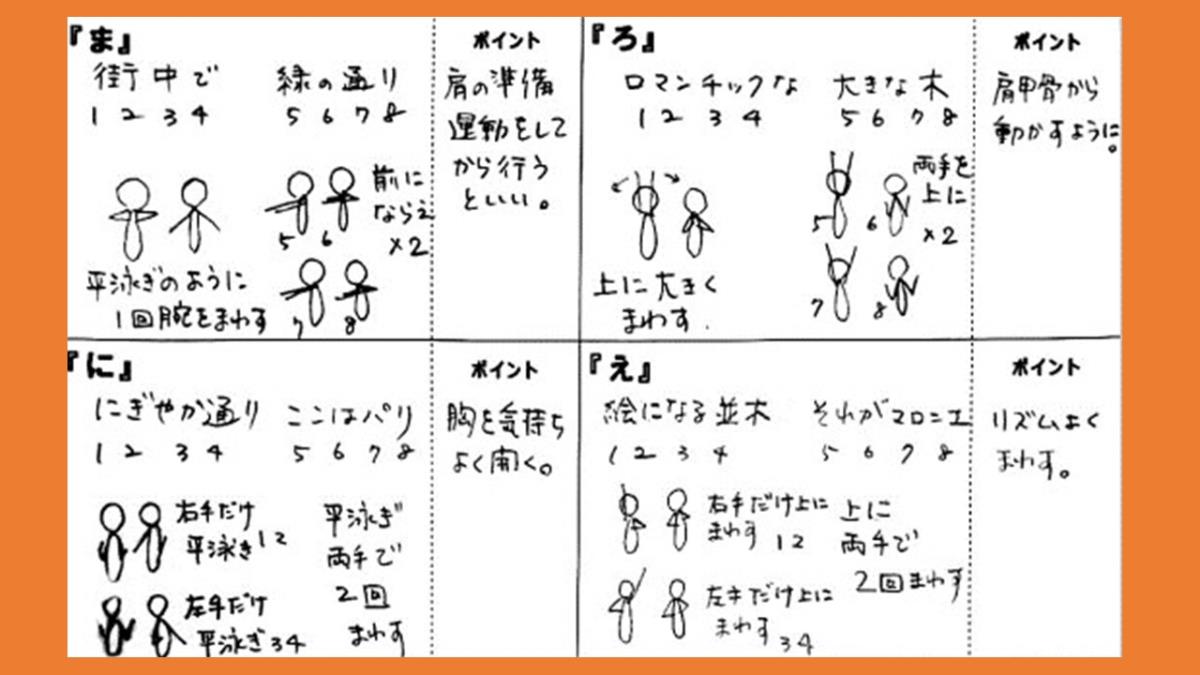 『ま』
街中で 緑の通り
1 2 3 4 5 6 7 8
5 6
前に
ならえ
×2
7 8
平泳ぎのように
1回腕をまわす
ポイント
肩の準備
運動をして
から行う
といい。
『ろ』
ロマンチックな 大きな木
1 2 3 4 5 6 7 8
上に大きく
まわす.
5 6
両手を
上に
×2
7 8
ポイント
肩甲骨から
動かすように。
『に』
にぎやか通り ここはパリ
1 2 3 4 5 6 7 8
右手だけ
平泳ぎ12
左手だけ
平泳ぎ34
平泳ぎ
両手で
2回
まわす
ポイント
胸を気持ち
よく開く。
『え』
絵になる並木 それがマロニエ
1 2 3 4 5 6 7 8
右手だけ上に
まわす 12
左手だけ上に
まわす 34
上に
両手で
2回まわす
ポイント
リズムよく
まわす。